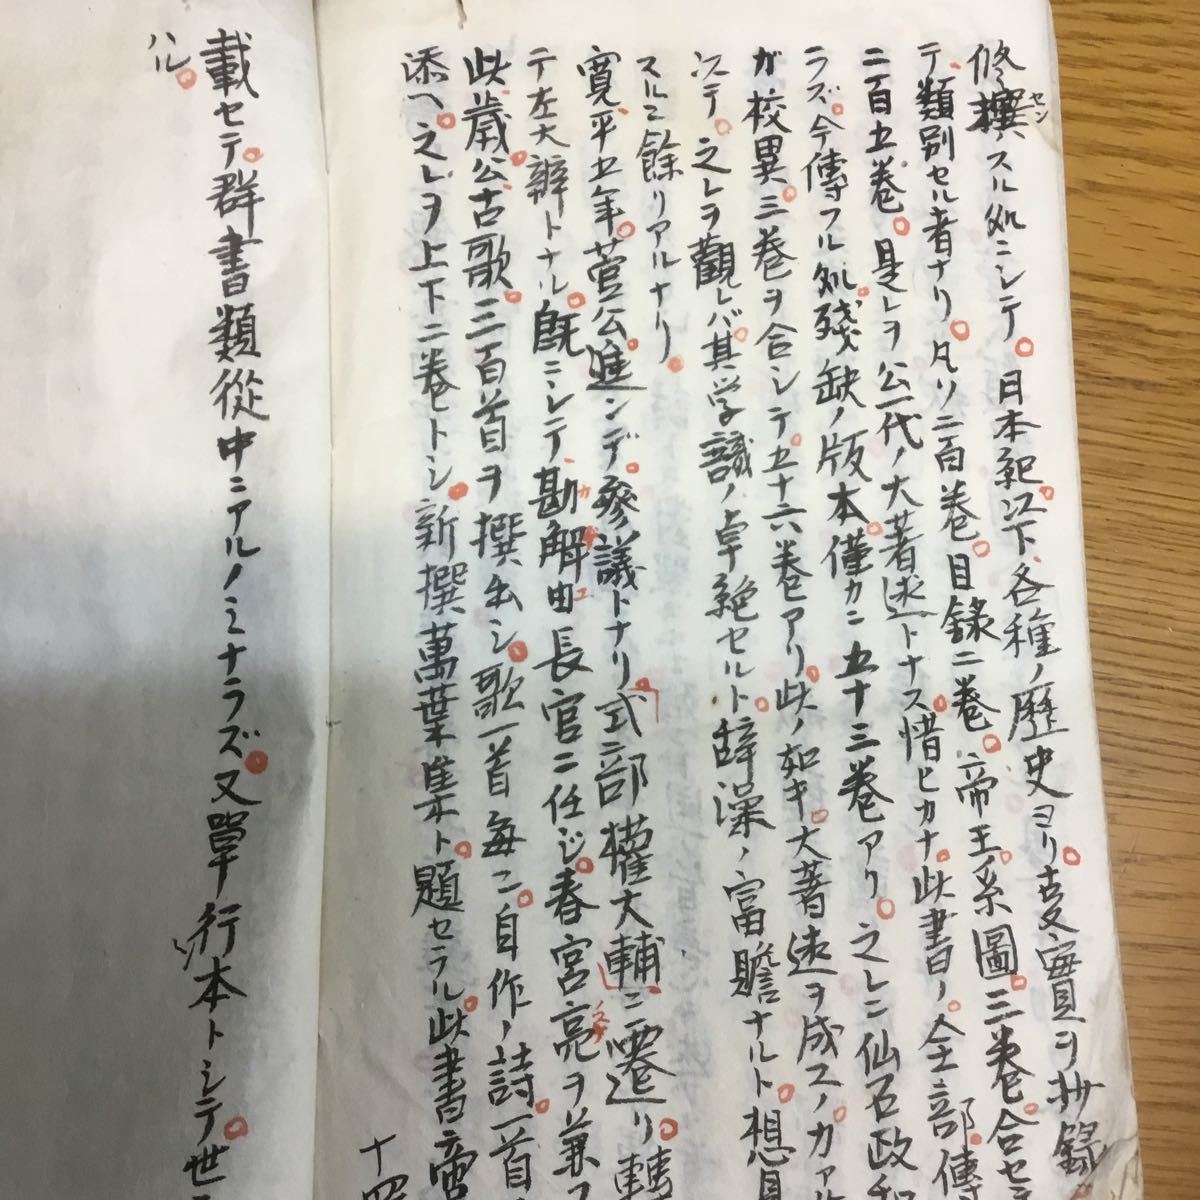 修撰スル処ニシテ。日本紀以下。各種ノ歴史ヨリ。事実ヲ抄録
セン
テ、類別セル者ナリ。凡リ二百巻。目録二巻。帝王系圖。三巻。合セ
二百五巻。是レヲ公一代ノ大著述トナス惜ヒカナ。此書ノ。全部傳
ラズ。今傳フル処。残缺ノ版本。僅カニ五十三巻アリ。之レニ仙石政和
ガ校異。三巻ヲ合シテ。五十六巻アリ。此ノ如キ。大著述ヲ成スノカア
以テ。之レヲ觀レバ。其学識ノ卓絶セルト。辞藻ノ富贍ナルト。想見
スルニ餘リアルナリ。
寛平五年。菅公。進ンデ。参議トナリ。式部権大輔ニ遷リ。轉
テ左大辨トナル。既ニシテ勘解由長官ニ任ジ。春宮亮ヲ兼
此歳。公。古歌。三百首ヲ撰出シ。歌一首毎ニ。自作ノ詩一首
添ヘ。之レヲ上下二巻トシ。新撰萬葉集ト。題セラル。此書
載セテ。群書類從中ニアルノミナラズ。又單行本トシテ。世
ハル。